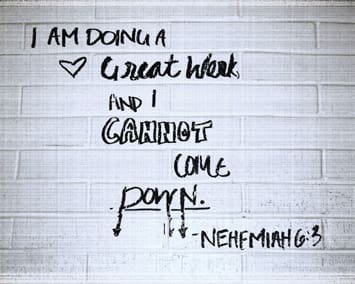 I AM DOING A
Great Work
AND I
CANNOT
COME
DOWN.
-NEHEMIAH 6:3